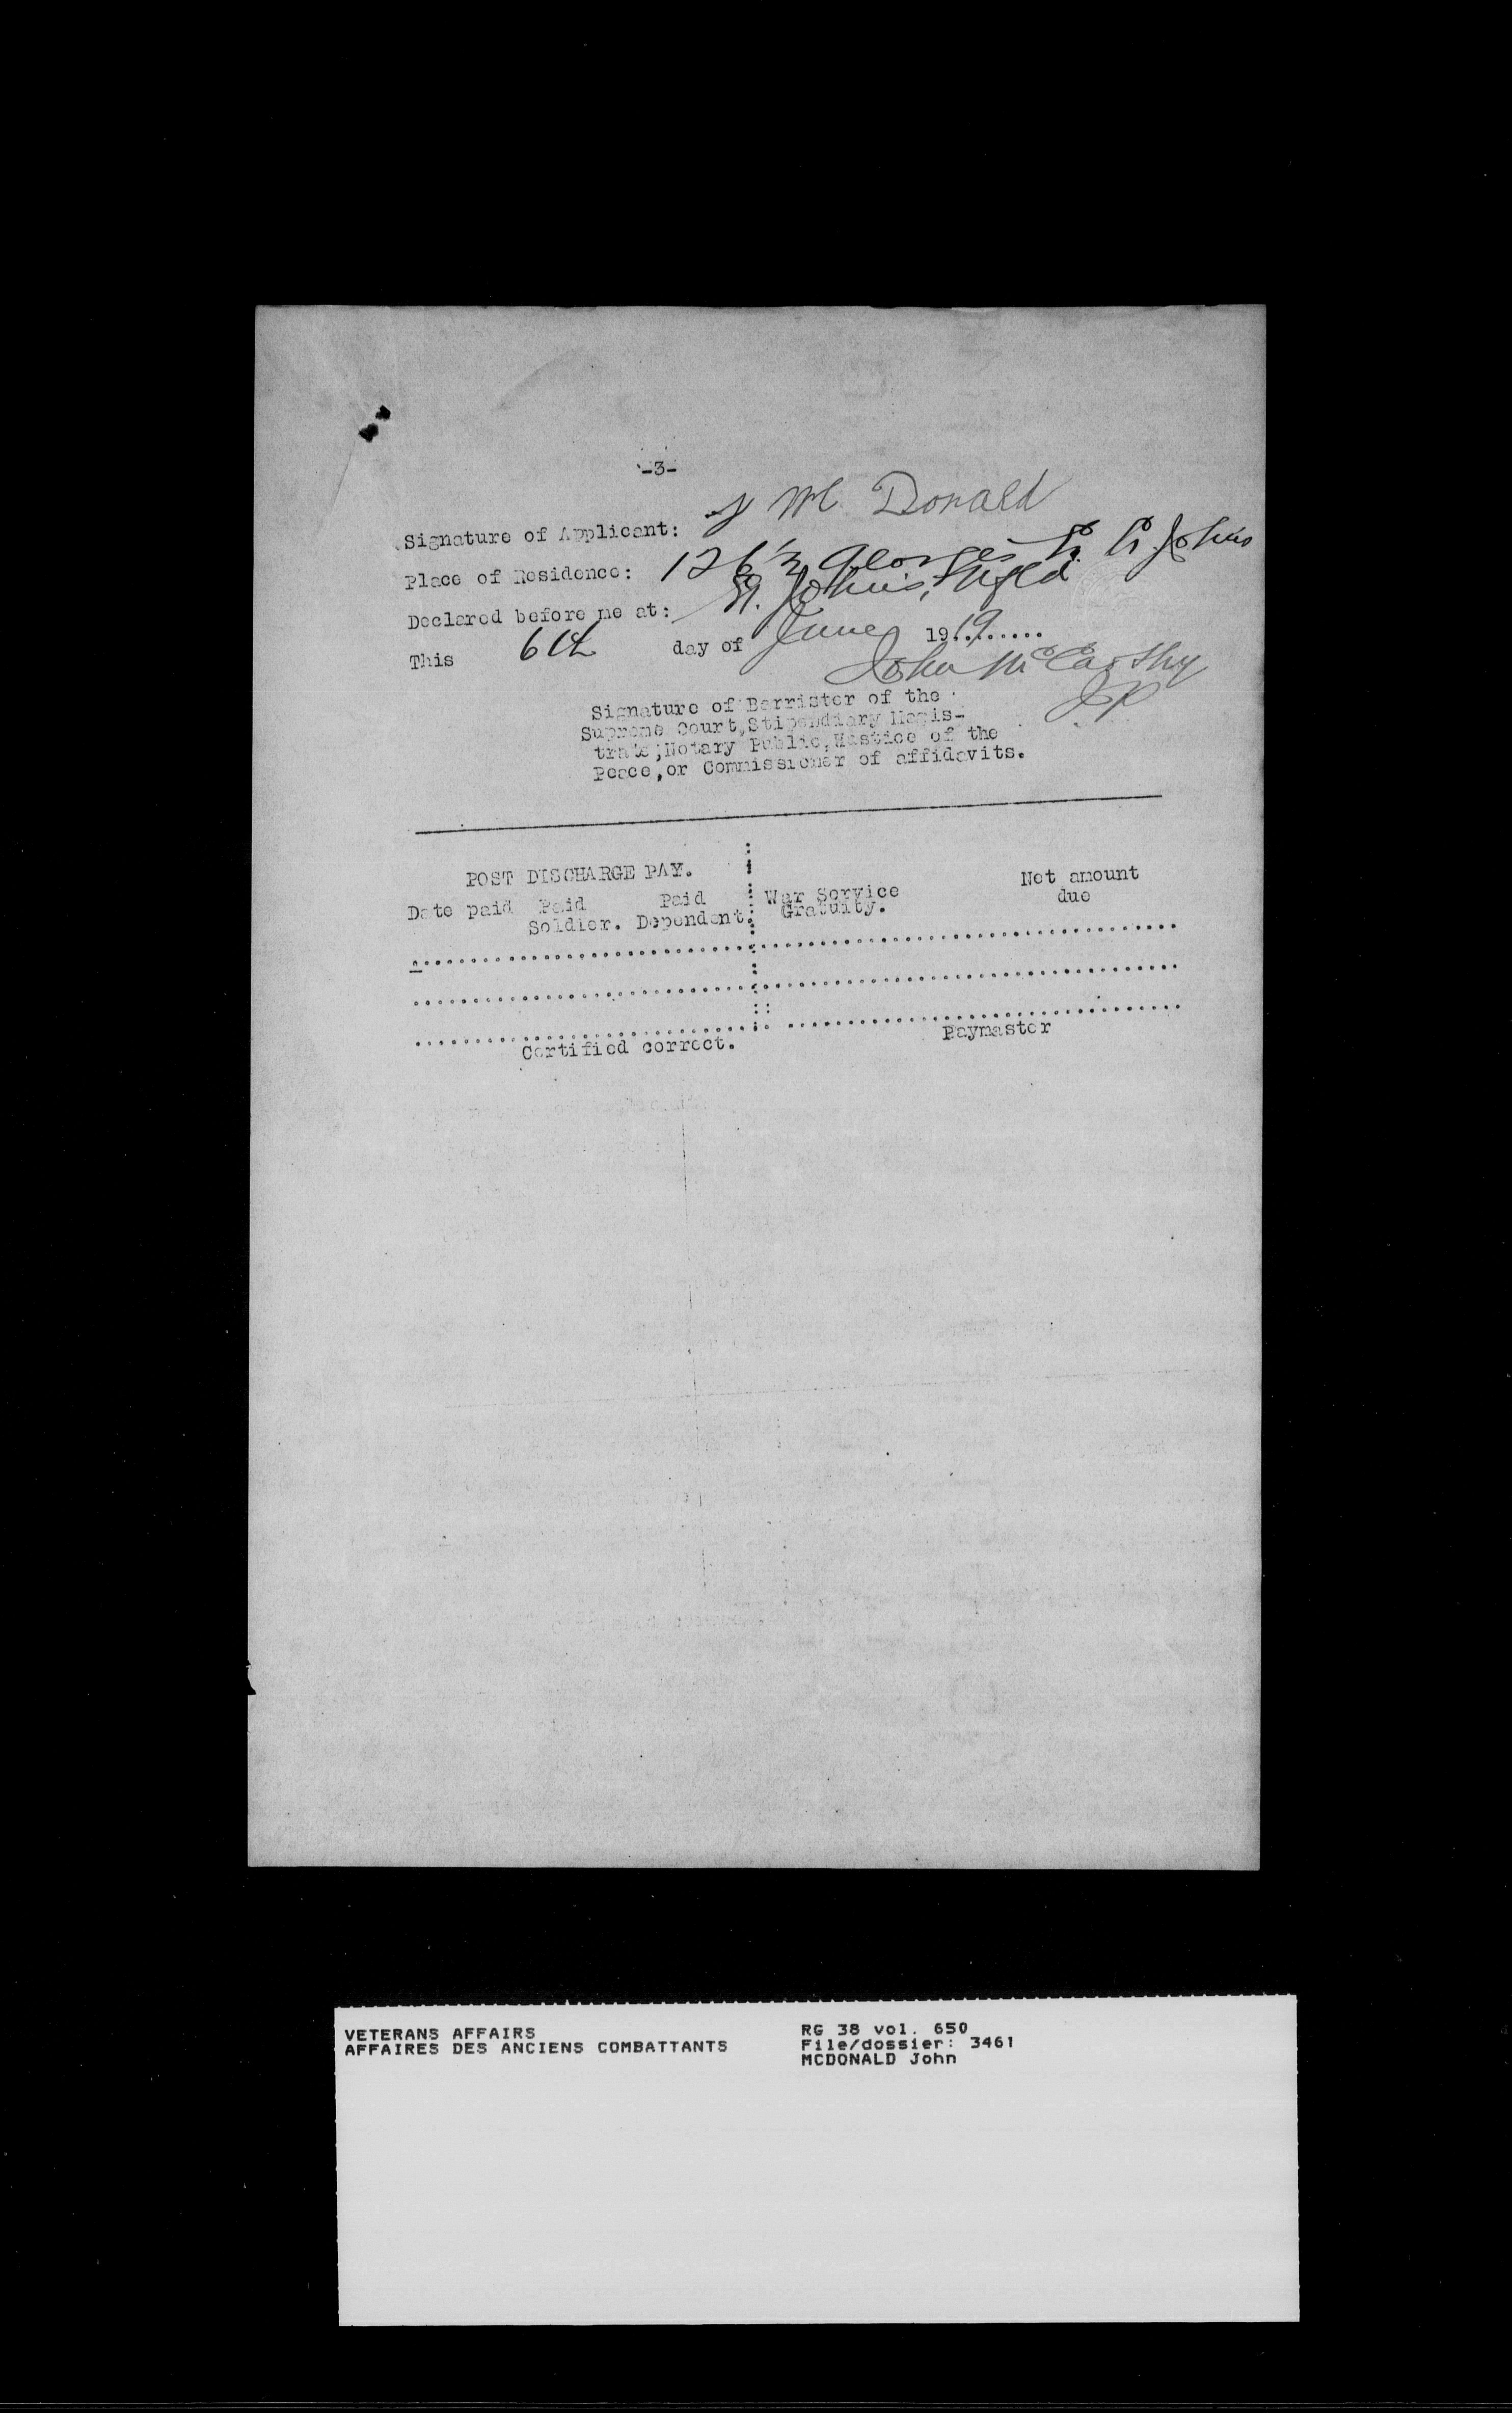 -3-
Signature of Applicant: J Mc Donald
Place of Residence: 126½ Georges St. St Johns
Declared before me at: St. John's, Nfld
This 6th day of June 1919........
John McCarthy
JP
Signature of Barrister of the
Supreme Court,Stipendiary Magis-
trate;Notary Public,Justice of the
Peace,or Commissioner of affidavits.
POST DISCHARGE PAY.
Date paid Paid Soldier. Paid Dependent. War Service Gratuity. Net amount due
Certified correct. Paymaster
VETERANS AFFAIRS
AFFAIRES DES ANCIENS COMBATTANTS
RG 38 vol. 650
File/dossier: 3461
MCDONALD John